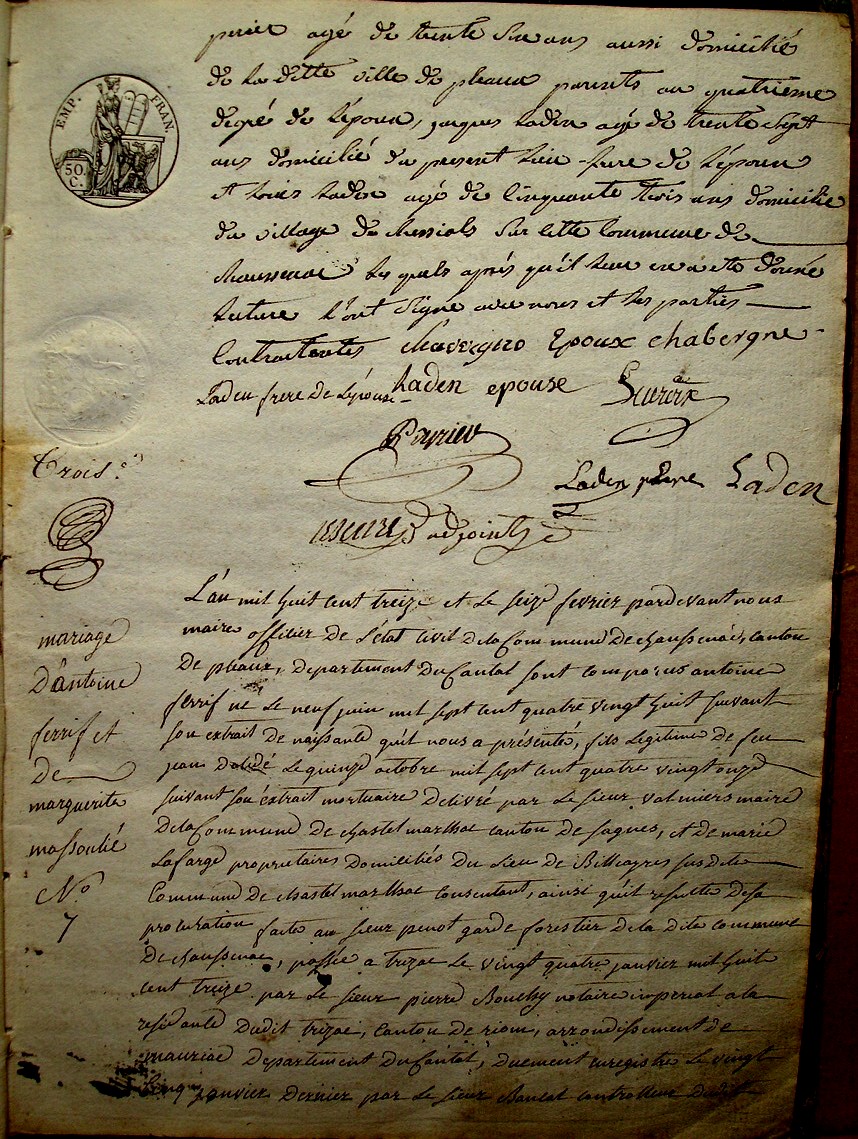 EMP. FRAN.
50 C.
perier agé de trente six ans aussi domicilié
de la ditte ville de pleaux parents au quatrieme
degré de Lépoux, jaques Laden agé de trente sept
ans domicilié du present lieu frere de Lépoux
et Louis Laden agé de Cinquante trois ans domicilié
du village de Messials sur cette Commune de
Chaussenac les quels après qu'il leur en a été donné
lecture L'ont signé avec nous et les parties
Contractantes Chavergno Epoux chabergne
Laden frere de Lépouse Laden epouse
Parrieu
Laden pere Laden
Trois.e
adjoint
mariage
D'antoine
ferrif et
de
marguerite
massoulié
No
7
L'an mil huit cent treize et Le seize fevrier pardevant nous
maire officier de L'état Civil dela Commune De chaussenac, canton
De pleaux, Departement Du Cantal sont comparus antoine
ferrif né Le neuf juin mil sept cent quatre vingt huit suivant
son extrait de naissance qu'il nous a présenté, fils Legitime de feu
jean Décédé Le quinze octobre mil sept cent quatre vingt onze
suivant son extrait mortuaire Delivré par Le sieur valmiers maire
Dela Commune De chastel marlhac canton De saignes, et De marie
Lafarge propriétaires Domiciliés Du Lieu de Billeayres susdite
Commune De chastel marlhac Consentant, ainsi qu'il resulte Desa
procuration faite au sieur penot garde forestier Dela dite commune
De chaussenac, passée a trizac Le vingt quatre janvier mil huit
cent treize par Le sieur pierre Bouchy notaire imperial a la
residence Dudit trizac, Canton De riom, arrondissement de
mauriac Departement Du Cantal, Duement enregistré Le vingt
Cinq janvier Dernier par Le sieur controlleur Dudit